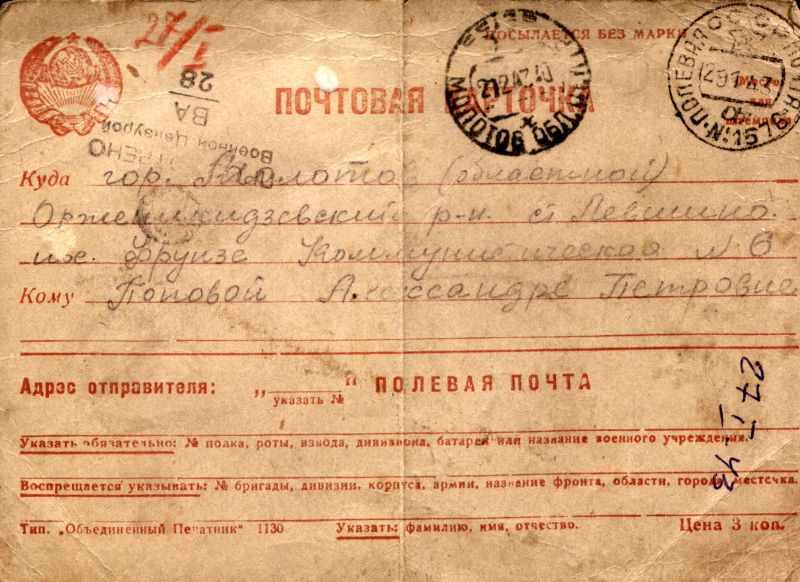 27/I
ПОСЫЛАЕТСЯ БЕЗ МАРКИ
ПОЧТОВАЯ КАРТОЧКА
28
ВА
Военной Цензурой
МОЛОТОВ ОБЛ.
ПОЛЕВАЯ
12 9 1 43
№ 1576
для
Куда гор. Молотов (областной)
Орженикидзевский р-н ст Левшино.
им. Фрунзе Коммунистическая № 6
Кому Поповой Александре Петровне
Адрес отправителя: „ “ ПОЛЕВАЯ ПОЧТА
указать №
27 I 43
Указать обязательно: № полка, роты, взвода, дивизиона, батареи или название военного учреждения.
Воспрещается указывать: № бригады, дивизии, корпуса, армии, название фронта, области, города, местечка.
Тип. „Объединенный Печатник“ 1130 Указать: фамилию, имя, отчество. Цена 3 коп.